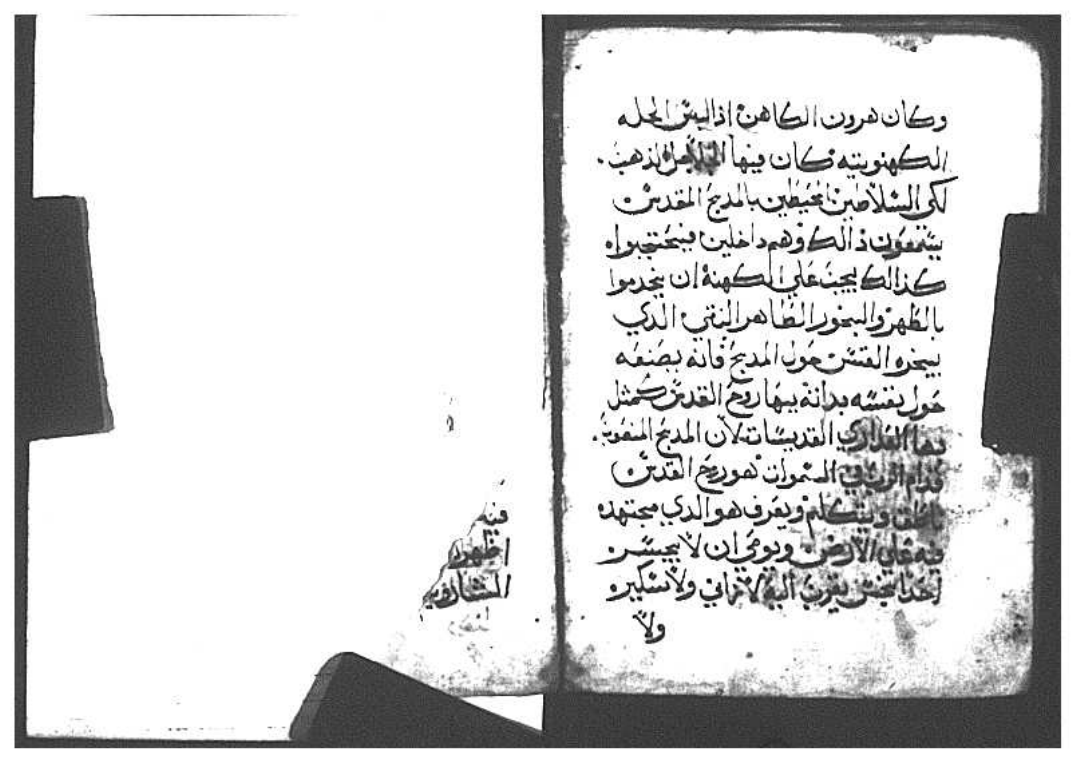 وكان هرون الكاهن اذا لبس الحله
الكهنوتيه فكان فيها الجلاجل الذهب.
لكي السلاطين المحيطين بالمدبح المقدس
يستمعون ذالك وهم داخلين فيحتجبوا
كذالك يجب علي الكهنة ان يخدموا
بالطهر والبخور الطاهر النقي الذي
يبخره القسس حول المدبح فانه يصنعه
حول نفسه بدانة بيها روح القدس كمثل
القديسات لان المدبح
قدام الرب في السموات هو روح القدس
ناطق ويتكلم ويعرف هو الدي مجتهده
فيه علي الارض ويومي ان لا يجسر
احدا نجس يقرب اليه لا زاني ولا سكير
ولا
فيه
اظهر